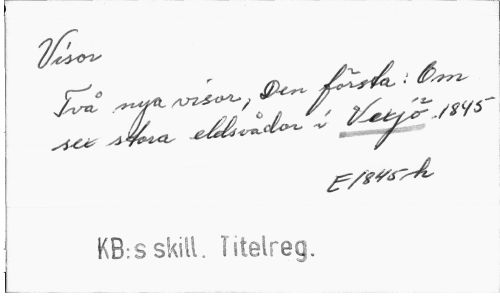 Visor
Två nya visor, Den första: Om
sex stora eldsvådor i Vexjö. 1845
E 1845 h
KB:s skill. Titelreg.